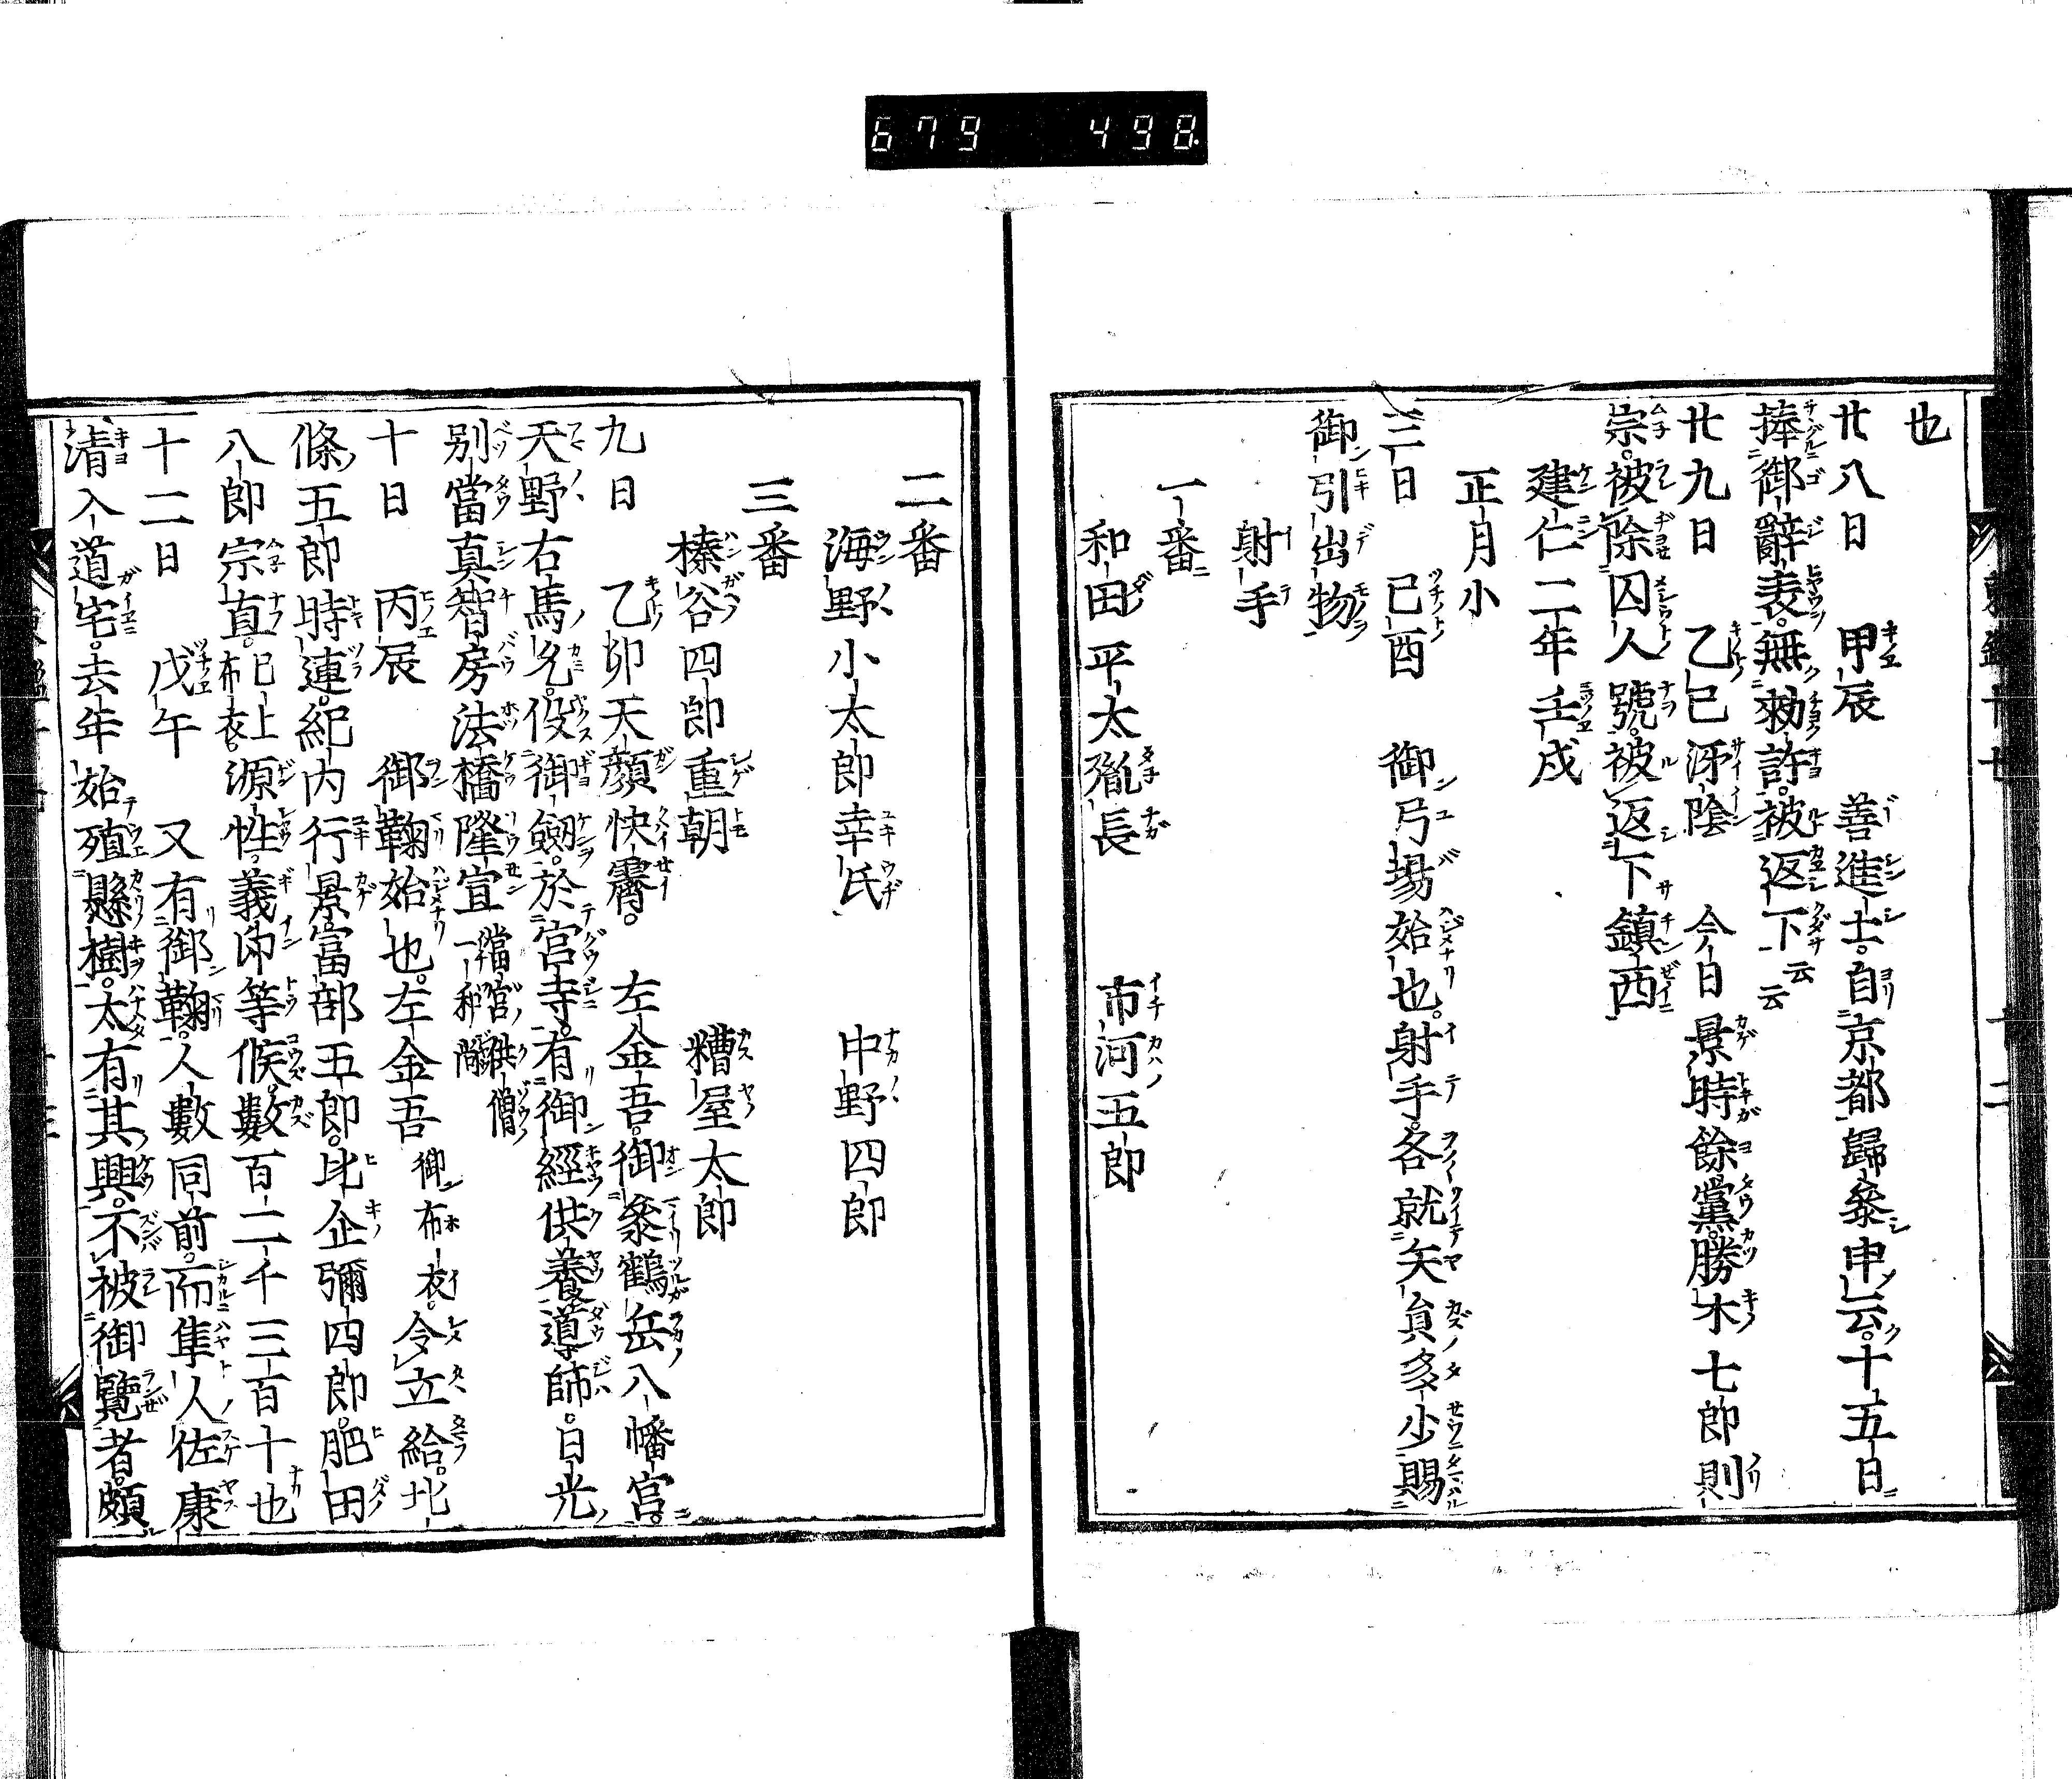 679 498
也
廿八日 甲辰 善進士。自京都歸參申云。十五日
捧御辭表。無勅許。被返下云云
廿九日 乙巳 沍陰 今日景時餘黨。勝木七郎則
宗。被除囚人號。被返下鎮西
建仁二年壬戌
正月小
三日 己酉 御弓場始也。射手。各就矢員多少賜
御引出物
射手
一番
和田平太胤長 市河五郎
二番
海野小太郎幸氏 中野四郎
三番
榛谷四郎重朝 糟屋太郎
九日 乙卯天顏快霽。 左金吾。御參鶴岳八幡宮。
天野右馬允。役御劔。於宮寺。有御經供養導師。日光
別當真智房法橋隆宣當宮供僧一和尚
十日 丙辰 御鞠始也。左金吾御布衣。令立給。北
條五郎時連。紀内行景。冨部五郎。比企彌四郎。肥田
八郎宗直。已上布衣。源性。義印等候。數百二千三百十也
十二日 戊午 又有御鞠。人數同前。而隼人佐康
清入道宅。去年始殖懸樹。太有其興。不被御覽者。頗